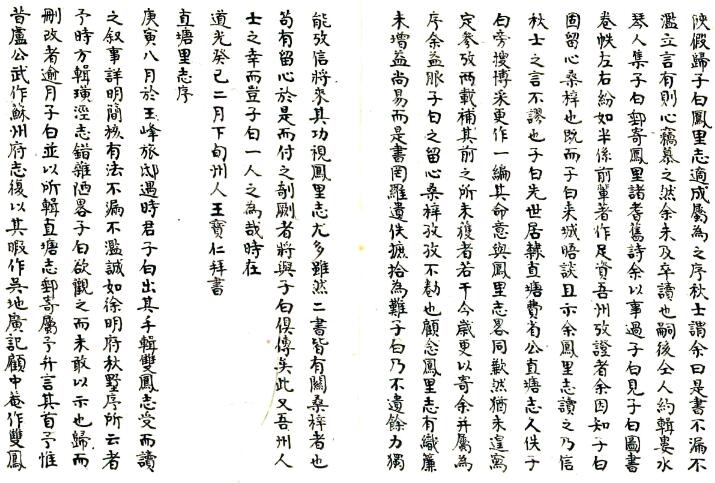 陝假歸子白鳳里志適成屬為之序秋士謂余曰是書不漏不
濫立言有則心竊慕之然余未及卒讀也嗣後仝人約輯婁水
琴人集子白郵寄鳳里諸耆舊詩余以事過子白見子白圖書
卷帙左右紛如半係前輩著作足資吾州攷證者余因知子白
固留心桑梓也既而子白來城晤談且示余鳳里志讀之乃信
秋士之言不謬也子白先世居隸直塘費省公直塘志久佚子
白旁搜博采更作一編其命意與鳳里志畧同歉然猶未遑寫
定參攷兩載補其前之所未復者若干今歲更以寄余并屬為
序余益服子白之留心桑梓孜孜不勌也顧念鳳里志有織簾
未增益尚易而是書罔羅遺佚摭拾為難子白乃不遺餘力獨
能攷信將來其功視鳳里志尤多雖然二書皆有關桑梓者也
苟有留心於是而付之剞劂者將與子白俱傳矣此又吾州人
士之幸而豈子白一人之為哉時在
道光癸巳二月下旬州人王寶仁拜書
直塘里志序
庚寅八月於玉峰旅邸遇時君子白出其手輯雙鳳志受而讀
之叙事詳明簡核有法不漏不濫誠如徐明府秋墅序所云者
予時方輯璜涇志錯雜陋畧子白欲觀之而未敢以示也歸而
刪改者逾月子白並以所輯直塘志郵寄屬予弁言其首予惟
昔盧公武作蘇州府志復以其暇作吳地廣記顧中菴作雙鳳